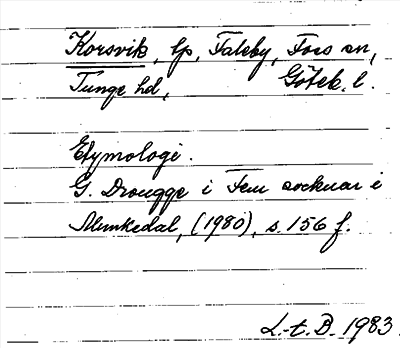 Korsvik, lp, Faleby, Foss sn,
Tunge hd, Göteb. l.
Etymologi.
G. Drougge i Fem socknar i
Munkedal, (1980), s. 156 f.
L.-t. B. 1983